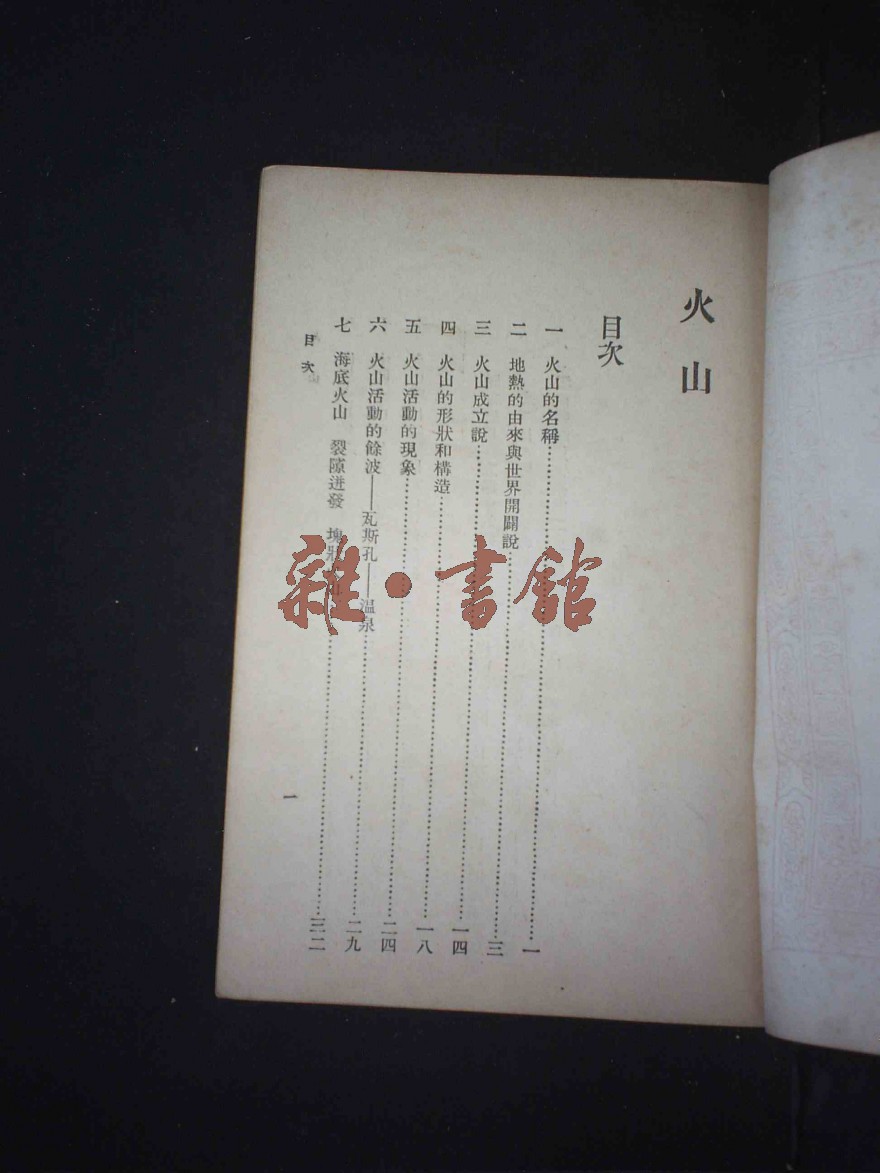 火山
目次
一 火山的名稱……一
二 地熱的由來與世界開闢說……三
三 火山成立說……一四
四 火山的形狀和構造……一八
五 火山活動的現象……二四
六 火山活動的餘波——瓦斯孔——溫泉……二九
七 海底火山 裂隙迸發 塊狀……三二
目次
一
雜·書館